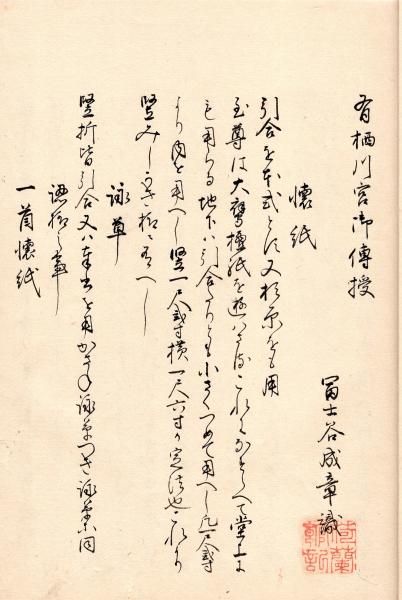 有栖川宮御傳授
冨士谷成章識
懐紙
引合を本式とす又杉原をも用
至尊は大鷹檀紙を遊ハさるこれになそらへて堂上に
も用らる地下ハ引合たりとも小さくつめて用へし凡一尺弐寸
より内を用へし竪一尺弐寸横一尺六寸か定法也これより
竪みしかき
詠草
竪折皆引合又ハ奉書を用かさね詠草つき詠草同
一首懐紙